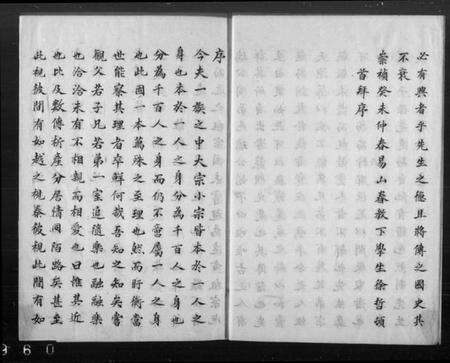 必有興者乎先生之德且將傳之國史其
不衰
崇禎癸未仲春易山眷教下學生徐哲頓
首拜序
序
今夫一族之中大宗小宗皆本於一人之
身也本於一人之身分為千百人之身也
分為千百人之身而仍不啻屬一人之身
也此固一本萬殊之至理也然而盱衡當
世能察其理者卒鮮何哉吾知之矣嘗
觀父若子兄若弟一室追隨樂也融融樂
也洽洽未有不相親而相愛也曰惟其近
也比及數傳析產分居情同陌路矣甚至
此視彼間有如越之視秦彼視此間有如
360